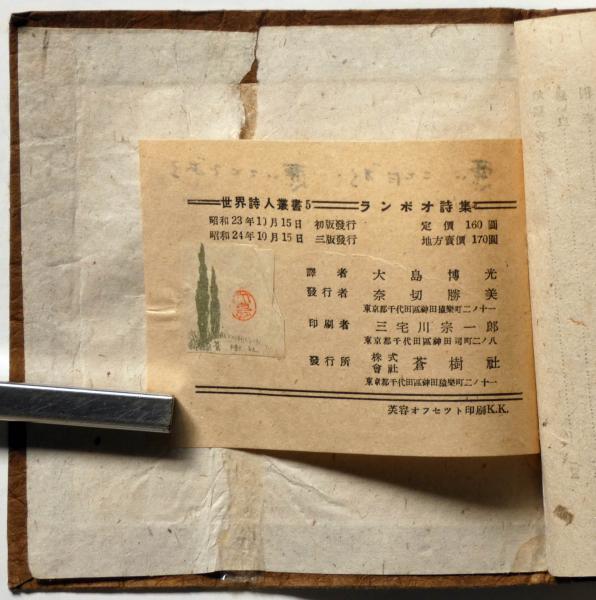 世界詩人叢書5 ランボオ詩集
昭和23年10月15日 初版發行 定價 160圓
昭和24年10月15日 三版發行 地方賣價 170圓
譯者 大島博光
發行者 奈切勝美
東京都千代田區神田猿樂町二ノ十一
印刷者 三宅川宗一郎
東京都千代田區神田司町二ノ八
發行所 株式會社 蒼樹社
東京都千代田區神田猿樂町二ノ十一
芙容オフセツト印刷K.K.